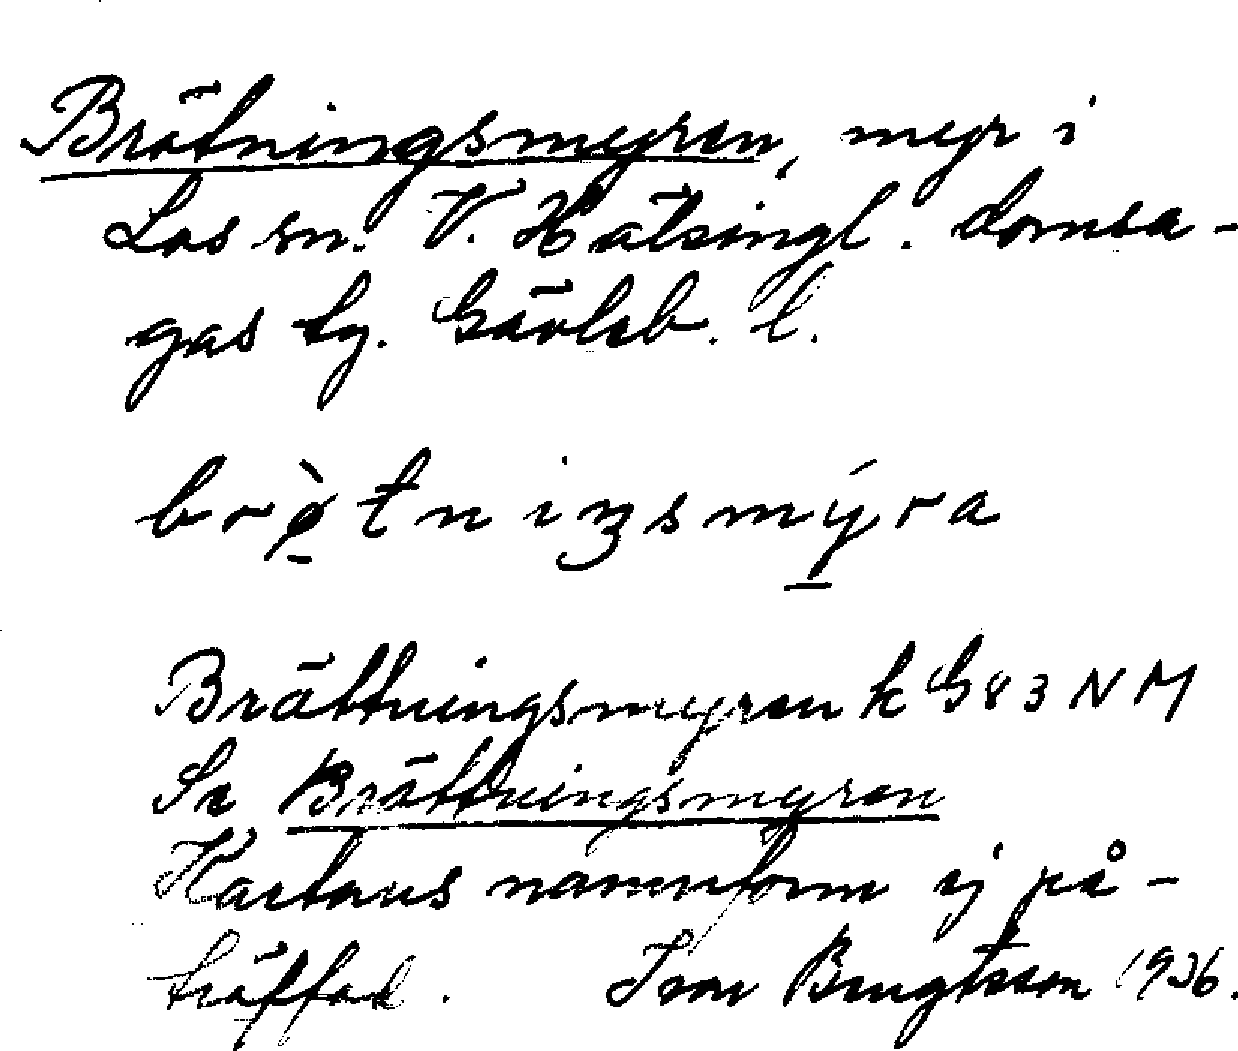 Brötningsmyren, myr i
Los sn. V. Hälsingl. domsa-
gas tg. Gävleb. l.
brø̀tniŋsmýra
Brättningsmyren k G83 NM
Se Brättningsmyren
Kartans namnform ej på-
träffad. Ivar Bengtsson 1936.